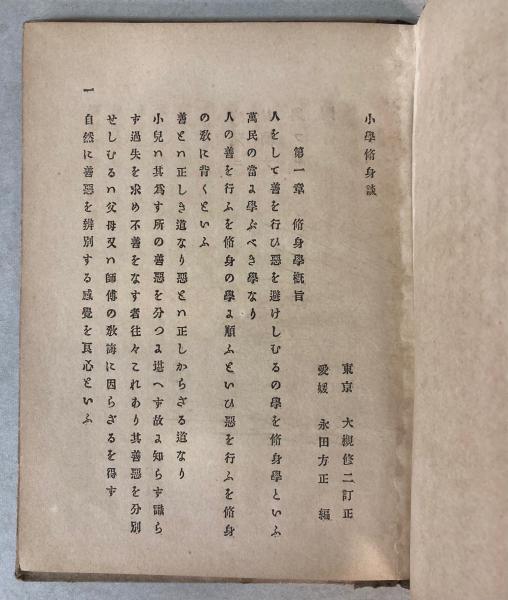 小學脩身談
東京　大槻修二訂正
愛媛　永田方正　編
第一章　脩身學槪旨
人をして善を行ひ惡を避けしむるの學を脩身學といふ
萬民の當ᄅ學ぶべき學なり
人の善を行ふを脩身の學ᄅ順ふといひ惡を行ふを脩身
の敎に背くといふ
善とハ正しき道なり惡とハ正しからざる道なり
小兒ハ其爲す所の善惡を分つᄅ堪へず故ᄅ知らず識ら
ず過失を求め不善をなす者往々これあり其善惡を分別
せしむるハ父母又ハ師傅の敎誨に因らざるを得ず
自然に善惡を辨別する感覺を良心といふ
一